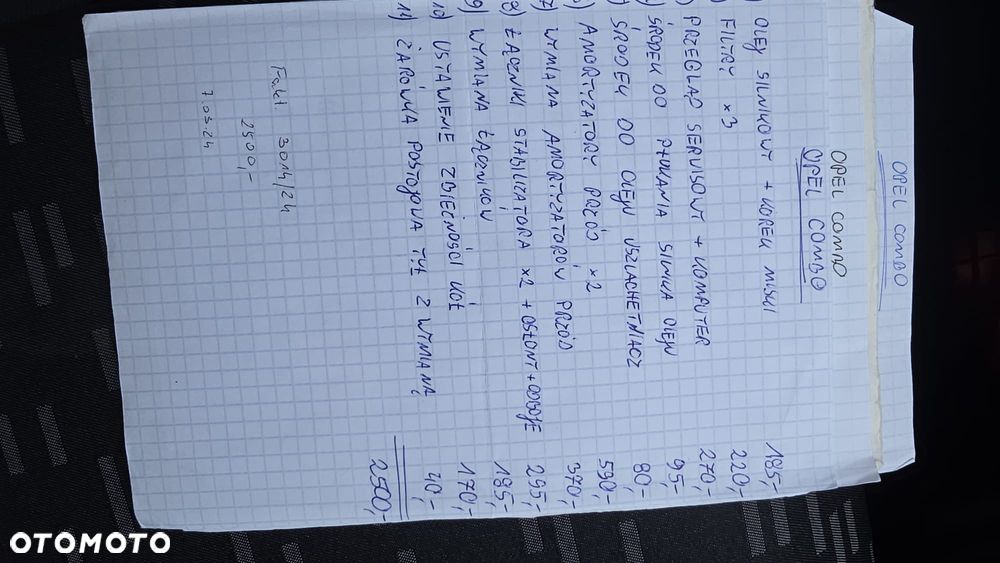 OPEL COMBO
OPEL COMBO
OPEL COMBO
) OLEJ SILNIKOWY + KOREK MISKI 185,-
) FILTRY x3 220,-
) PRZEGLĄD SERWISOWY + KOMPUTER 270,-
) ŚRODEK DO PŁUKANIA SILNIKA OLEJU 95,-
) ŚRODEK DO OLEJU USZLACHETNIACZ 80,-
) AMORTYZATORY PRZÓD x2 590,-
7) WYMIANA AMORTYZATORÓW PRZÓD 370,-
8) ŁĄCZNIKI STABILIZATORA x2 + OSŁONY + ODBOJE 295,-
9) WYMIANA ŁĄCZNIKÓW 185,-
10) USTAWIENIE ZBIEŻNOŚCI KÓŁ 170,-
11) ŻARÓWKA POSTOJOWA TYŁ Z WYMIANĄ 40,-
2500,-
Fakt 3014/24
2500,-
7.05.24
OTOMOTO